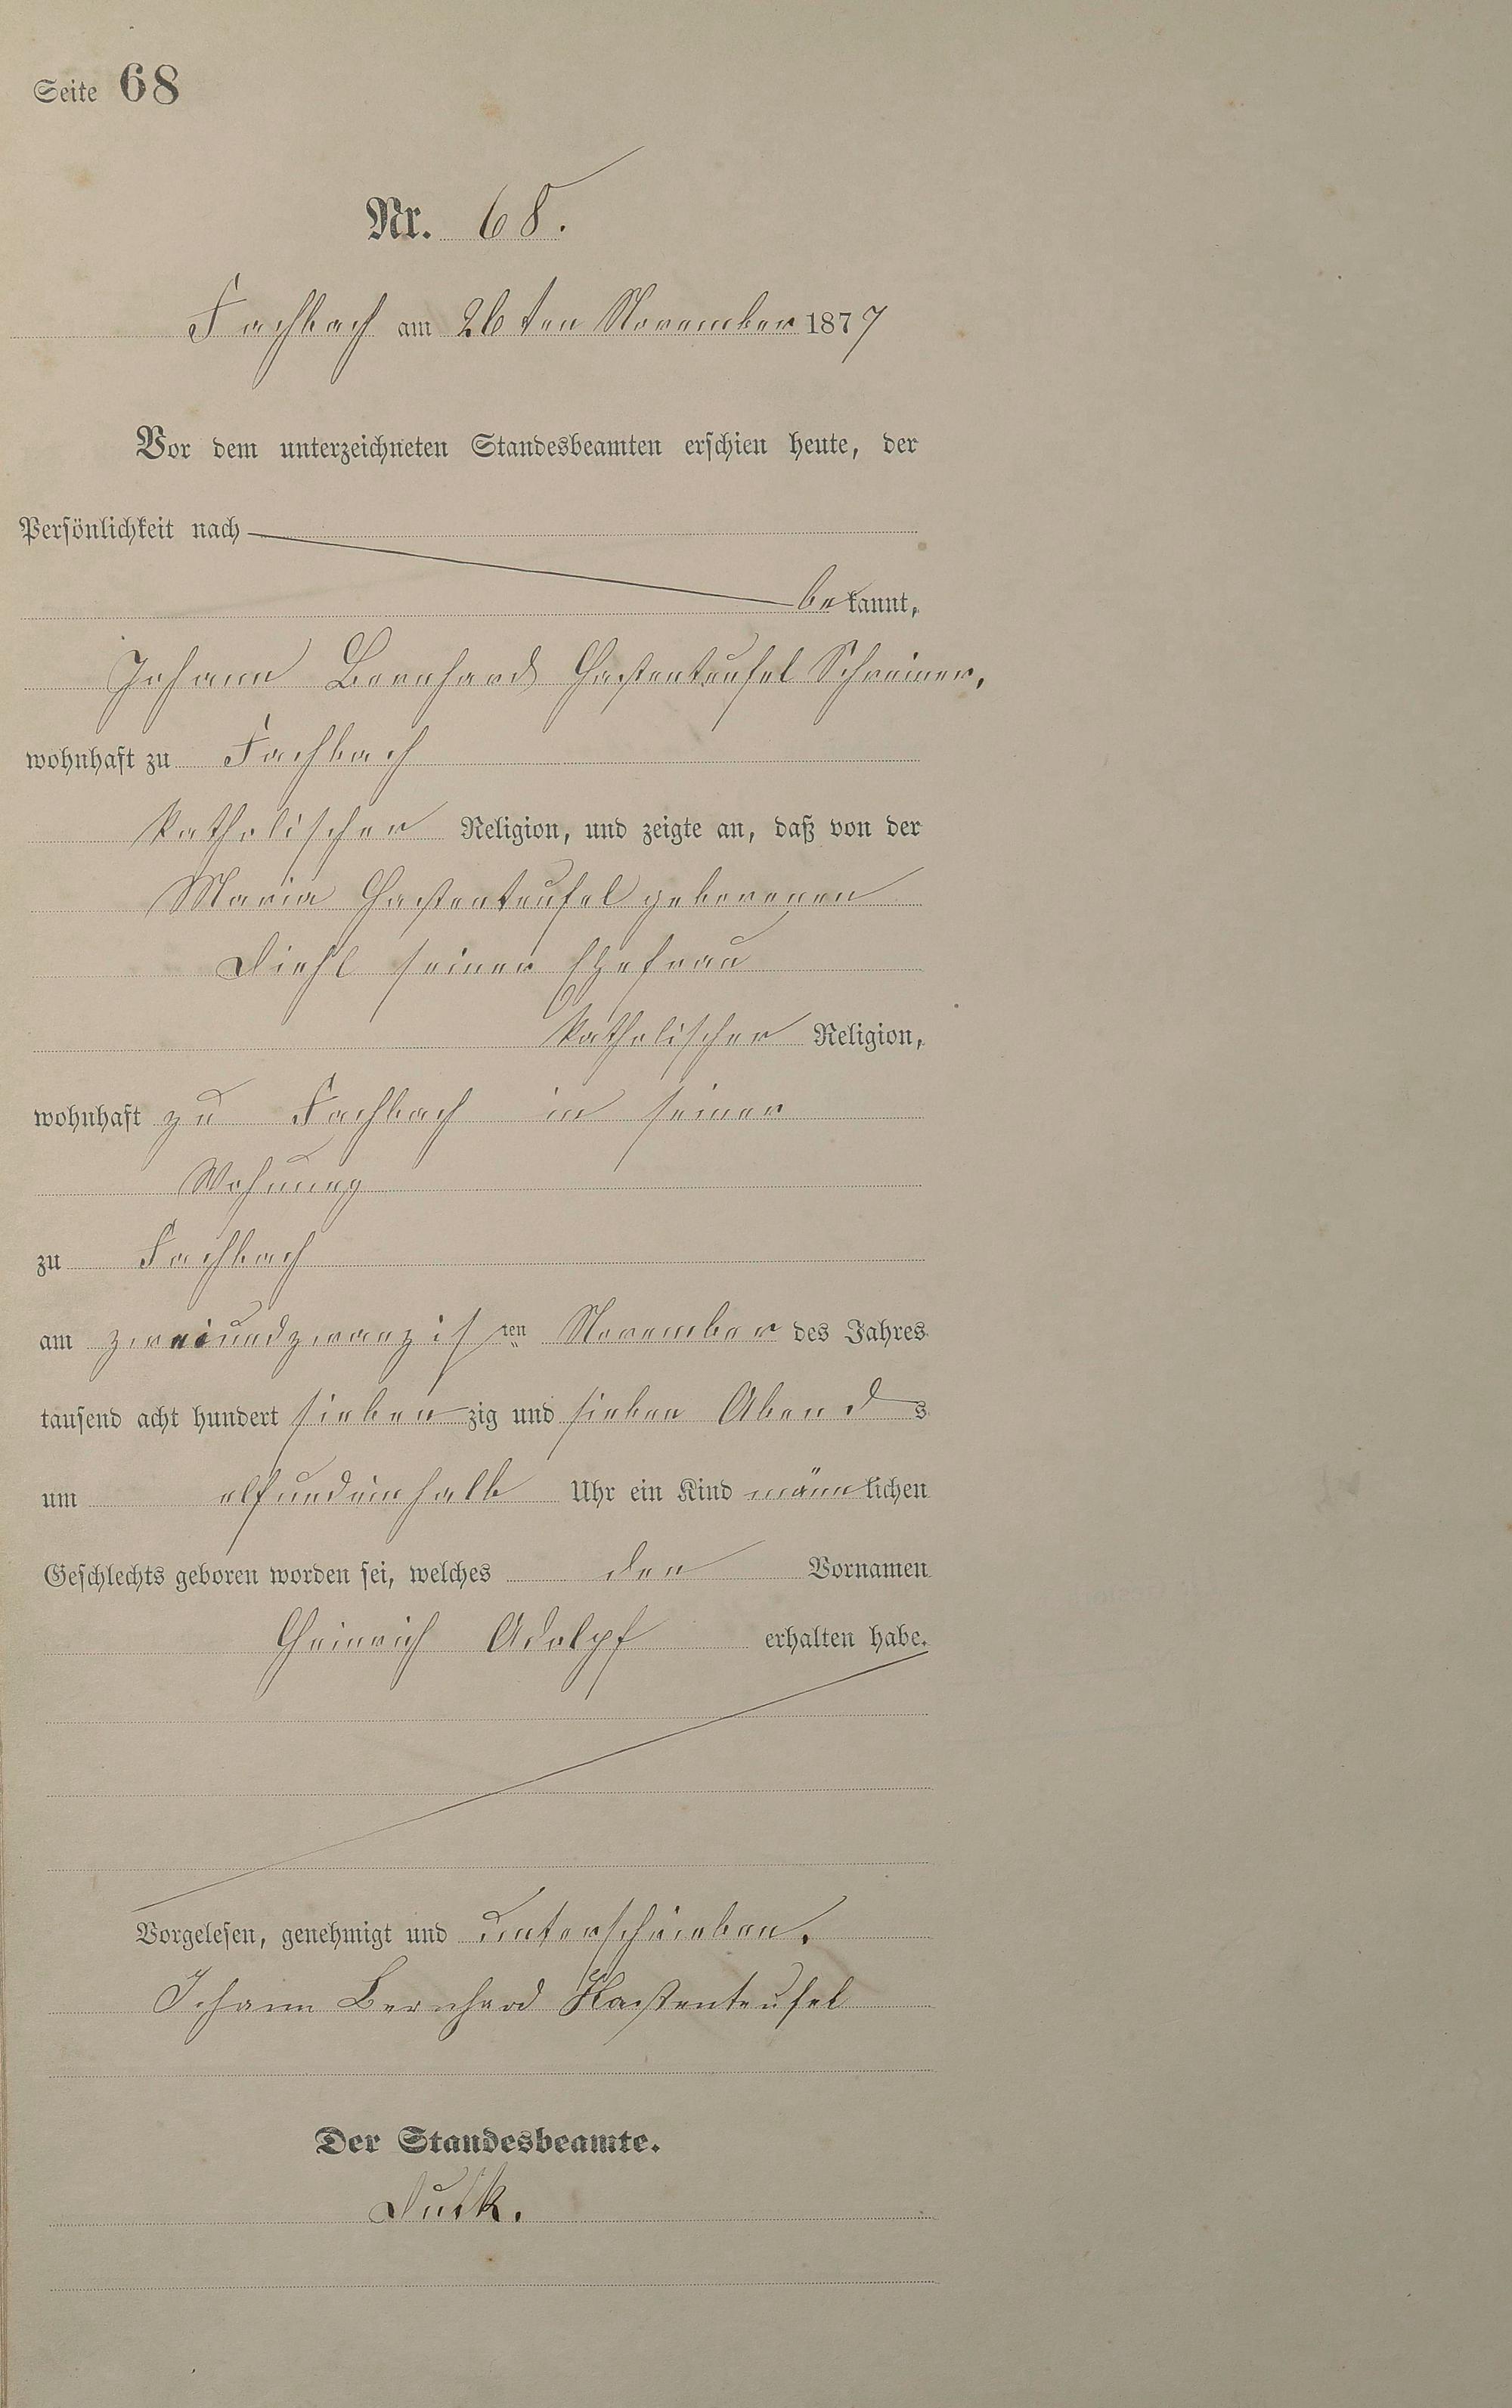 Seite 68
Nr. 68.
Fachbach am 26ten November 1877
Vor dem unterzeichneten Standesbeamten erschien heute, der
Persönlichkeit nach
bekannt,
Johann Bernhard Hastenteufel Schreiner,
wohnhaft zu Fachbach
Katholischer Religion, und zeigte an, daß von der
Maria Hastenteufel geborenen
Diehl seiner Ehefrau
Katholischer Religion,
wohnhaft zu Fachbach in seiner
Wohnung
zu Fachbach
am zweiundzwanzigsten November des Jahres
tausend acht hundert siebenzig und sieben Abends
um elfundeinhalb Uhr ein Kind männlichen
Geschlechts geboren worden sei, welches den Vornamen
Heinrich Adolpf erhalten habe.
Vorgelesen, genehmigt und unterschrieben.
Johann Bernhard Hastenteufel
Der Standesbeamte.